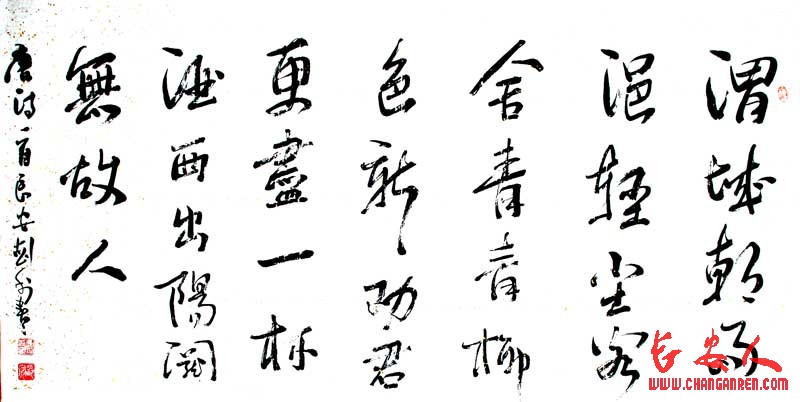 渭城朝雨
浥輕尘客
舍青青柳
色新劝君
更盡一杯
酒西出陽關
無故人
唐诗一首長安書
长安人
www.changanren.com